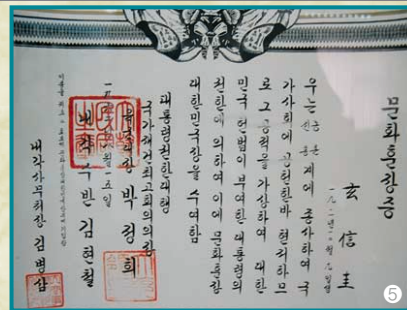 문화훈장증
玄信圭
우는 계에 종사하여 국
가사회에 공헌한바 현저하므
로 그 공적을 가상하여 대한
민국 헌법이 부여한 대통령의
권한에 의하여 이에 문화훈장
대한민국장을 수여함
대통령권한대행
국가재건최고회의의장
육군대장 박정희
내각수반 김현철
내각사무처장 김병삼
5